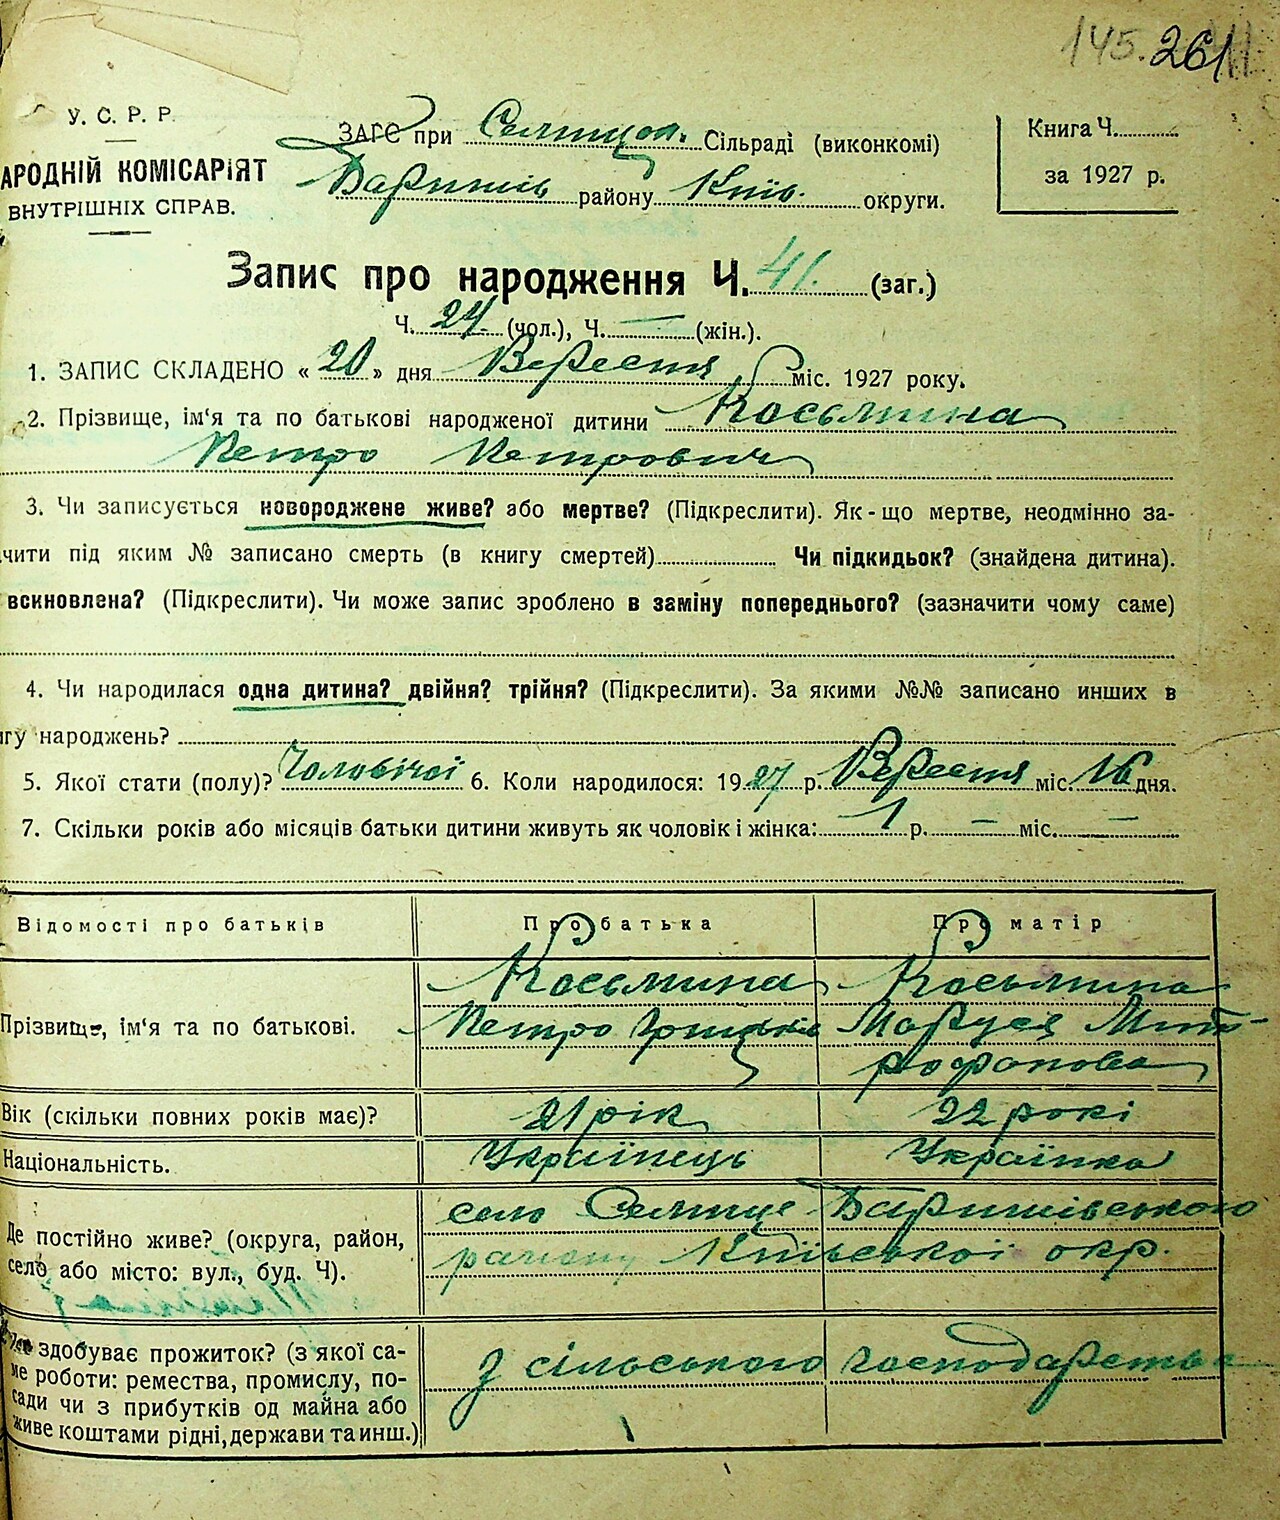 145. 261
У. С. Р. Р.
АРОДНІЙ КОМІСАРІЯТ
ВНУТРІШНІХ СПРАВ.
ЗАГС при Селищан. Сільраді (виконкомі)
Баришів району Київ. округи.
Книга Ч.
за 1927 р.
Запис про народження Ч. 41. (заг.)
Ч. 24 (чол.), Ч. — (жін.).
1. ЗАПИС СКЛАДЕНО « 20 » дня Вересня міс. 1927 року.
2. Прізвище, ім‘я та по батькові народженої дитини Косьмина
Петро Петрович
3. Чи записується новороджене живе? або мертве? (Підкреслити). Як-що мертве, неодмінно за-
чити під яким № записано смерть (в книгу смертей) Чи підкидьок? (знайдена дитина).
всиновлена? (Підкреслити). Чи може запис зроблено в заміну попереднього? (зазначити чому саме)
4. Чи народилася одна дитина? двійня? трійня? (Підкреслити). За якими №№ записано инших в
гу народжень?
5. Якої стати (полу)? Чоловічої 6. Коли народилося: 1927 р. Вересня міс. 16 дня.
7. Скільки років або місяців батьки дитини живуть як чоловік і жінка: 1 р. — міс. —
Відомості про батьків Про батька Про матір
Прізвище, ім‘я та по батькові.
Косьмина Косьмина
Петро Грицьків Маруся Мит-
рофанова
Вік (скільки повних років має)? 21 рік 22 рокі
Національність. Українець Українка
Де постійно живе? (округа, район,
село або місто: вул., буд. Ч).
село Селище Баришівського
району Київської окр.
здобуває прожиток? (з якої са-
ме роботи: ремества, промислу, по-
сади чи з прибутків од майна або
живе коштами рідні, держави та инш.)
З сільського господарства